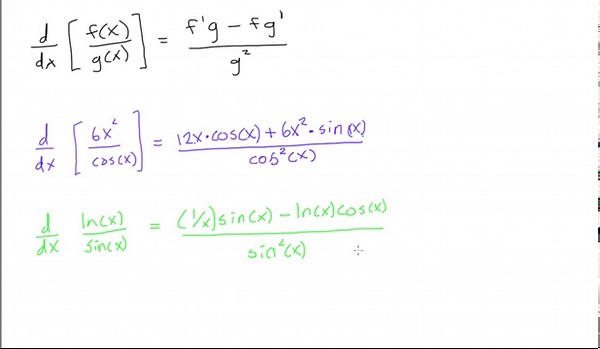 d/dx [f(x)/g(x)] = (f'g - fg')/g²
d/dx [6x²/cos(x)] = (12x·cos(x) + 6x²·sin(x))/cos²(x)
d/dx ln(x)/sin(x) = ((1/x)sin(x) - ln(x)cos(x))/sin²(x)